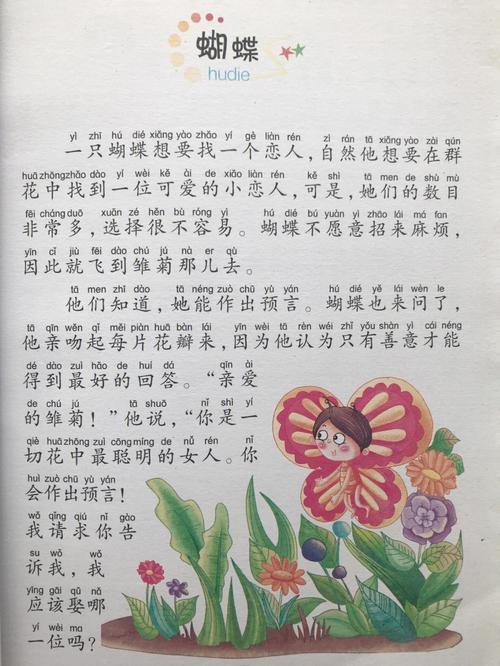 蝴蝶
hudie
yì zhī hú dié xiǎng yào zhǎo yí gè liàn rén zì rán tā xiǎng yào zài qún
一只蝴蝶想要找一个恋人，自然他想要在群
huā zhōng zhǎo dào yí wèi kě ài de xiǎo liàn rén kě shì tā men de shù mù
花中找到一位可爱的小恋人，可是，她们的数目
fēi cháng duō xuǎn zé hěn bù róng yì hú dié bú yuàn yì zhāo lái má fan
非常多，选择很不容易。蝴蝶不愿意招来麻烦，
yīn cǐ jiù fēi dào chú jú nà er qù
因此就飞到雏菊那儿去。
tā men zhī dào tā néng zuò chū yù yán hú dié yě lái wèn le
他们知道，她能作出预言。蝴蝶也来问了，
tā qīn wěn qǐ měi piàn huā bàn lái yīn wèi tā rèn wéi zhǐ yǒu shàn yì cái néng
他亲吻起每片花瓣来，因为他认为只有善意才能
dé dào zuì hǎo de huí dá qīn ài
得到最好的回答。“亲爱
de chú jú tā shuō nǐ shì yí
的雏菊！”他说，“你是一
qiè huā zhōng zuì cōng míng de nǚ rén nǐ
切花中最聪明的女人。你
huì zuò chū yù yán
会作出预言！
wǒ qǐng qiú nǐ gào
我请求你告
su wǒ wǒ
诉我，我
yīng gāi qǔ nǎ
应该娶哪
yí wèi ma
一位吗？